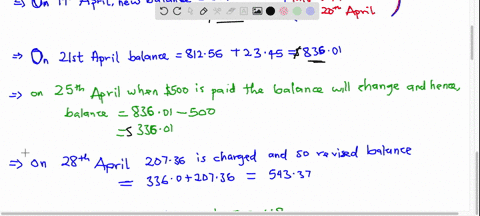 ⇒ On 1 April, new balance
20th April
⇒ On 21st April balance = 812.56 + 23.45 = $836.01
⇒ on 25th April when $500 is paid the balance will change and hence,
balance = 836.01 - 500
= $336.01
⇒ on 28th April 207.36 is charged and so revised balance
= 336.0 + 207.36 = 543.37